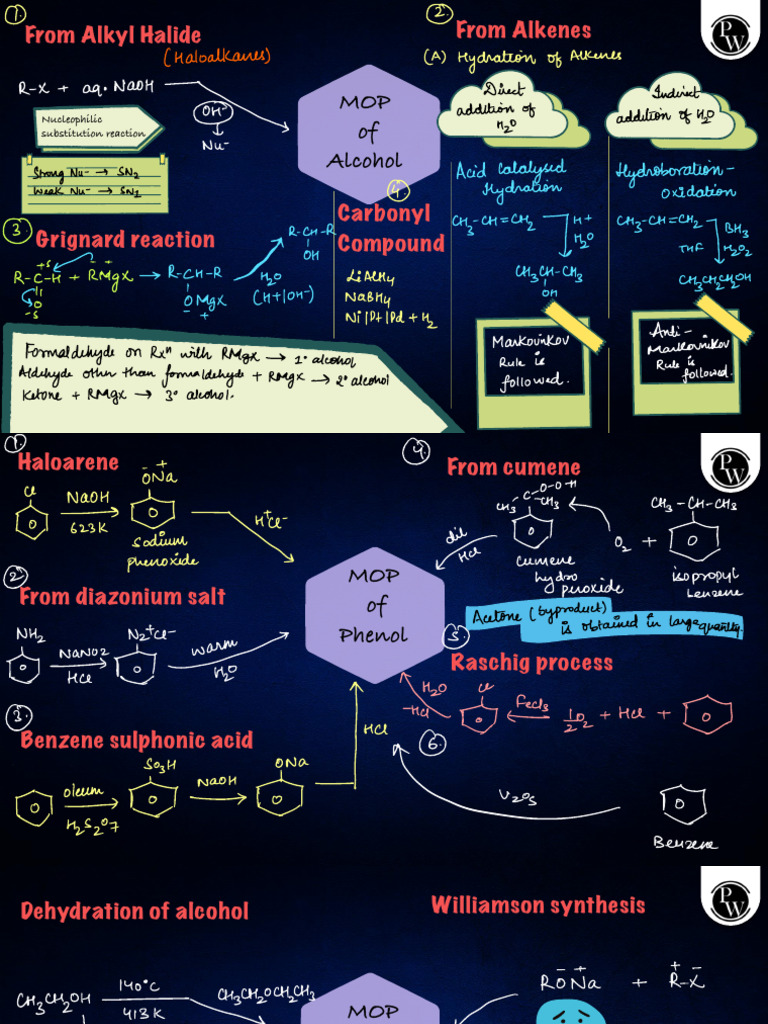 1.
From Alkyl Halide
(Haloalkanes)
R-X + aq. NaOH
OH⁻
Nu⁻
Nucleophilic
substitution reaction
Strong Nu⁻ → SN2
Weak Nu⁻ → SN1
MOP
of
Alcohol
2.
From Alkenes
(A) Hydration of Alkenes
Direct
addition of
H2O
Indirect
addition of H2O
Acid catalysed
Hydration
CH3-CH=CH2
H+
H2O
CH3CH-CH3
OH
Markovnikov
Rule is
followed.
Hydroboration-
oxidation
CH3-CH=CH2
BH3
THF
H2O2
CH3CH2CH2OH
Anti-
Markovnikov
Rule is
followed.
3
Grignard reaction
+δ
R-C-H + R⁻Mg⁺x → R-CH-R
O
-δ
OMgx
- +
H2O
(H+|OH⁻)
R-CH-R
OH
4.
Carbonyl
Compound
LiAlH4
NaBH4
Ni|Pt|Pd + H2
Formaldehyde on Rxn with RMgx → 1° alcohol
Aldehyde other than formaldehyde + RMgx → 2° alcohol
Ketone + RMgx → 3° alcohol.
PW
1.
Haloarene
Cl
NaOH
623K
- +
ONa
Sodium
phenoxide
H⁺Cl⁻
2.
From diazonium salt
NH2
NaNO2
HCl
N2⁺Cl⁻
warm
H2O
3.
Benzene sulphonic acid
oleum
H2S2O7
SO3H
NaOH
ONa
HCl
MOP
of
Phenol
4.
From cumene
O-O-H
CH3-C-CH3
cumene
hydro
peroxide
dil
HCl
O2
+
CH3-CH-CH3
isopropyl
benzene
Acetone (byproduct)
is obtained in large quantity.
5.
Raschig process
H2O
-HCl
Cl
FeCl3
1/2 O2 + HCl +
6.
V2O5
Benzene
PW
Dehydration of alcohol
CH3CH2OH
140°C
413K
CH3CH2OCH2CH3
MOP
Williamson synthesis
- +
RONa +
+ -
R-X
PW